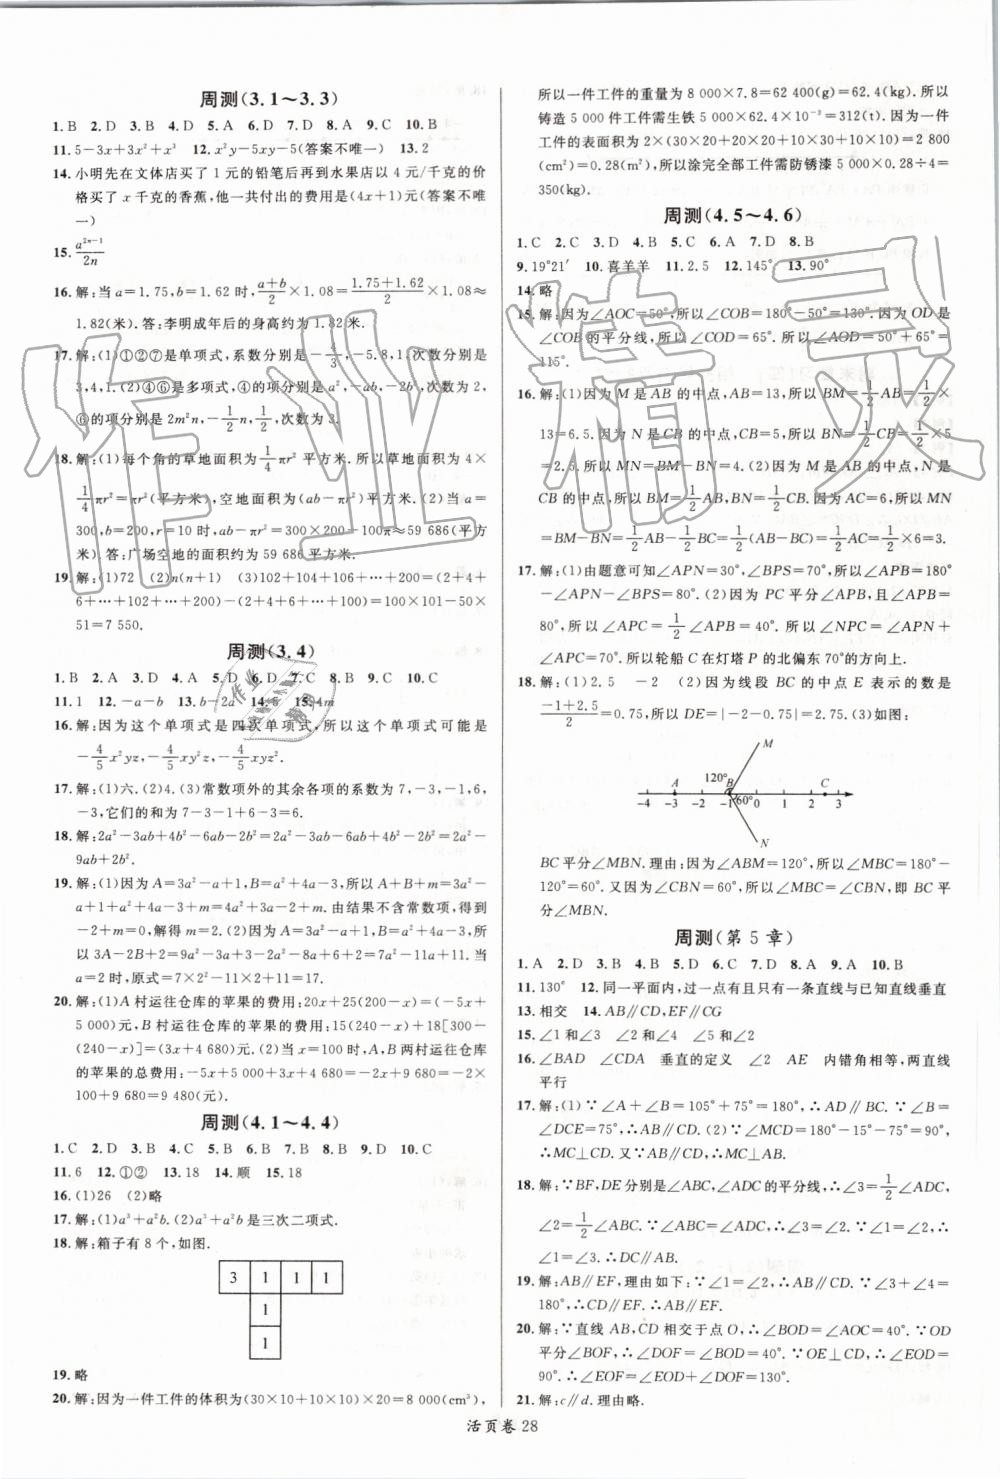 周测(3.1～3.3)
1.B 2.D 3.B 4.D 5.A 6.D 7.D 8.A 9.C 10.B
11.5－3x＋3x²＋x³ 12.x²y－5xy－5(答案不唯一) 13.2
14.小明先在文体店买了 1 元的铅笔后再到水果店以 4 元/千克的
价格买了 x 千克的香蕉,他一共付出的费用是(4x＋1)元(答案不唯
一)
15.a²ⁿ⁻¹/2n
16.解:当 a＝1.75,b＝1.62 时,(a＋b)/2×1.08＝(1.75＋1.62)/2×1.08≈
1.82(米).答:李明成年后的身高约为 1.82 米.
17.解:(1)①②⑦是单项式,系数分别是－4/3,－5.8,1.次数分别是
3,4,1.(2)④⑥是多项式,④的项分别是 a²,－ab,－2b²,次数是 2,
⑥的项分别是 2m²n,－1/2n,－1/2,次数是 3.
18.解:(1)每个角的草地面积为1/4πr² 平方米.所以草地面积为 4×
1/4πr²＝πr²(平方米),空地面积为(ab－πr²)平方米.(2)当 a＝
300,b＝200,r＝10 时,ab－πr²＝300×200－100π≈59 686(平方
米).答:广场空地的面积约为 59 686 平方米.
19.解:(1)72 (2)n(n＋1) (3)102＋104＋106＋…＋200＝(2＋4＋
6＋…＋102＋…＋200)－(2＋4＋6＋…＋100)＝100×101－50×
51＝7 550.
周测(3.4)
1.B 2.D 3.D 4.D 5.B 6.D 7.C 8.B 9.C 10.C
11.1 12.－a－b 13.b－2a 14.5 15.4m
16.解:因为这个单项式是四次单项式,所以这个单项式可能是
－4/5x²yz,－4/5xy²z,－4/5xyz².
17.解:(1)六.(2)4.(3)常数项外的其余各项的系数为 7,－3,－1,6,
－3,它们的和为 7－3－1＋6－3＝6.
18.解:2a²－3ab＋4b²－6ab－2b²＝2a²－3ab－6ab＋4b²－2b²＝2a²－
9ab＋2b².
19.解:(1)因为 A＝3a²－a＋1,B＝a²＋2a＋m,所以 A＋B＋m＝3a²－
a＋1＋a²＋2a＋m－3＝4a²＋a－2＋m.由结果不含常数项,得到
－2＋m＝0,解得 m＝2.(2)因为 A＝3a²－a＋1,B＝a²＋2a＋m,所
以 3A－2B＋2＝9a²－3a＋3－2a²－4a－4＋2＝7a²－7a＋11.当
a＝2 时,原式＝7×2²－14＋11＝28－14＋11＝25.
20.解:(1)A 村运往仓库的苹果的费用:20x＋25(200－x)＝(－5x＋
5 000)元,B 村运往仓库的苹果的费用:15(240－x)＋18[300－
(240－x)]＝(3x＋4 680)元.(2)当 x＝40 时,A,B 两村运往仓库
的苹果的总费用:－5x＋5 000＋3x＋4 680＝－2x＋9 680＝－2×
100＋9 680＝9 480(元).
周测(4.1～4.4)
1.C 2.D 3.B 4.C 5.A 6.B 7.D 8.C 9.D 10.C
11.6 12.①② 13.18 14.顺 15.18
16.(1)26 (2)略
17.解:(1)a³＋a²b.(2)a³＋a²b 是三次二项式.
18.解:箱子有 8 个,如图.
3 1 1 1
1
1
19.略
20.解:因为一件工件的体积为(30×10＋10×10)×20＝8 000(cm³),
所以一件工件的重量为 8 000×7.8＝62 400(g)＝62.4(kg).所以
铸造 5 000 件工件需生铁 5 000×62.4×10⁻³＝312(t).因为一件
工件的表面积为 2×(30×20＋10×20＋10×30＋10×10)＝2 800
(cm²)＝0.28(m²),所以涂完全部工件需防锈漆 5 000×0.28÷4＝
350(kg).
周测(4.5～4.6)
1.C 2.C 3.D 4.B 5.C 6.A 7.D 8.B
9.19°21′ 10.喜羊羊 11.2.5 12.145° 13.90°
14.略
15.解:因为∠AOC＝50°,所以∠COB＝180°－50°＝130°.因为 OD 是
∠COB 的平分线,所以∠COD＝65°.所以∠AOD＝50°＋65°＝
115°.
16.解:(1)因为 M 是 AB 的中点,AB＝13,所以 BM＝1/2AB＝1/2×
13＝6.5.因为 N 是 CB 的中点,CB＝5,所以 BN＝1/2CB＝1/2×5
＝2.5,所以 MN＝BM－BN＝4.(2)因为 M 是 AB 的中点,N 是
CB 的中点,所以 BM＝1/2AB,BN＝1/2BC.因为 AC＝6,所以 MN
＝BM－BN＝1/2AB－1/2BC＝1/2(AB－BC)＝1/2AC＝1/2×6＝3.
17.解:(1)由题意可知∠APN＝30°,∠BPS＝70°,所以∠APB＝180°
－∠APN－∠BPS＝80°.(2)因为 PC 平分∠APB,且∠APB＝
80°,所以∠APC＝1/2∠APB＝40°.所以∠NPC＝∠APN＋
∠APC＝70°.所以轮船 C 在灯塔 P 的北偏东 70°的方向上.
18.解:(1)2.5 －2 (2)因为线段 BC 的中点 E 表示的数是
(－1＋2.5)/2＝0.75,所以 DE＝|－2－0.75|＝2.75.(3)如图:
M
120° A B C
－4 －3 －2 －1 60° 0 1 2 3
N
BC 平分∠MBN.理由:因为∠ABM＝120°,所以∠MBC＝180°
－120°＝60°.又因为∠CBN＝60°,所以∠MBC＝∠CBN,即 BC 平
分∠MBN.
周测(第 5 章)
1.A 2.D 3.B 4.B 5.B 6.C 7.D 8.A 9.A 10.B
11.130° 12.同一平面内,过一点有且只有一条直线与已知直线垂直
13.相交 14.AB∥CD,EF∥CG
15.∠1和∠3 ∠2和∠4 ∠5和∠2
16.∠BAD ∠CDA 垂直的定义 ∠2 AE 内错角相等,两直线
平行
17.解:(1)∵∠A＋∠B＝105°＋75°＝180°,∴AD∥BC.∵∠B＝
∠DCE＝75°,∴AB∥CD.(2)∵∠MCD＝180°－15°－75°＝90°,
∴MC⊥CD.又∵AB∥CD,∴MC⊥AB.
18.解:∵BF,DE 分别是∠ABC,∠ADC 的平分线,∴∠3＝1/2∠ADC,
∠2＝1/2∠ABC.∵∠ABC＝∠ADC,∴∠3＝∠2.∵∠1＝∠2,
∴∠1＝∠3.∴DC∥AB.
19.解:AB∥EF,理由如下:∵∠1＝∠2,∴AB∥CD.∵∠3＋∠4＝
180°,∴CD∥EF.∴AB∥EF.
20.解:∵直线 AB,CD 相交于点 O,∴∠BOD＝∠AOC＝40°.∵OD
平分∠BOF,∴∠DOF＝∠BOD＝40°.∵OE⊥CD,∴∠EOD＝
90°.∴∠EOF＝∠EOD＋∠DOF＝130°.
21.解:c∥d.理由略.
活页卷 28
作业精灵
作业精灵